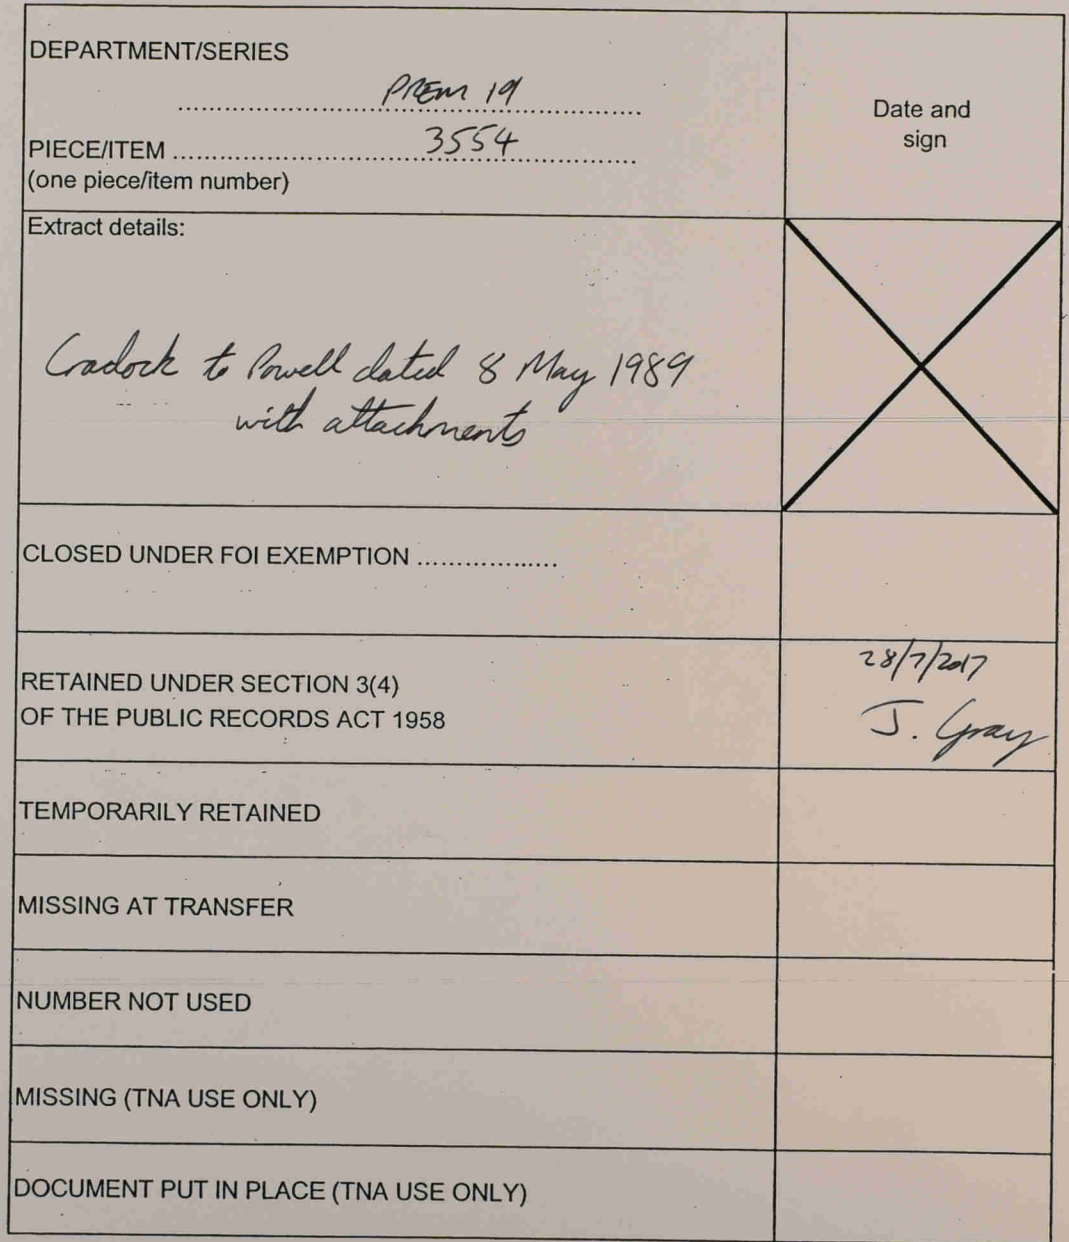 DEPARTMENT/SERIES
PREM 19
Date and
sign
PIECE/ITEM ........................ 3554 ........................
(one piece/item number)
Extract details:
Cradock to Powell dated 8 May 1989
with attachments
CLOSED UNDER FOI EXEMPTION ..................
RETAINED UNDER SECTION 3(4)
OF THE PUBLIC RECORDS ACT 1958
28/7/2017
J. Gray
TEMPORARILY RETAINED
MISSING AT TRANSFER
NUMBER NOT USED
MISSING (TNA USE ONLY)
DOCUMENT PUT IN PLACE (TNA USE ONLY)